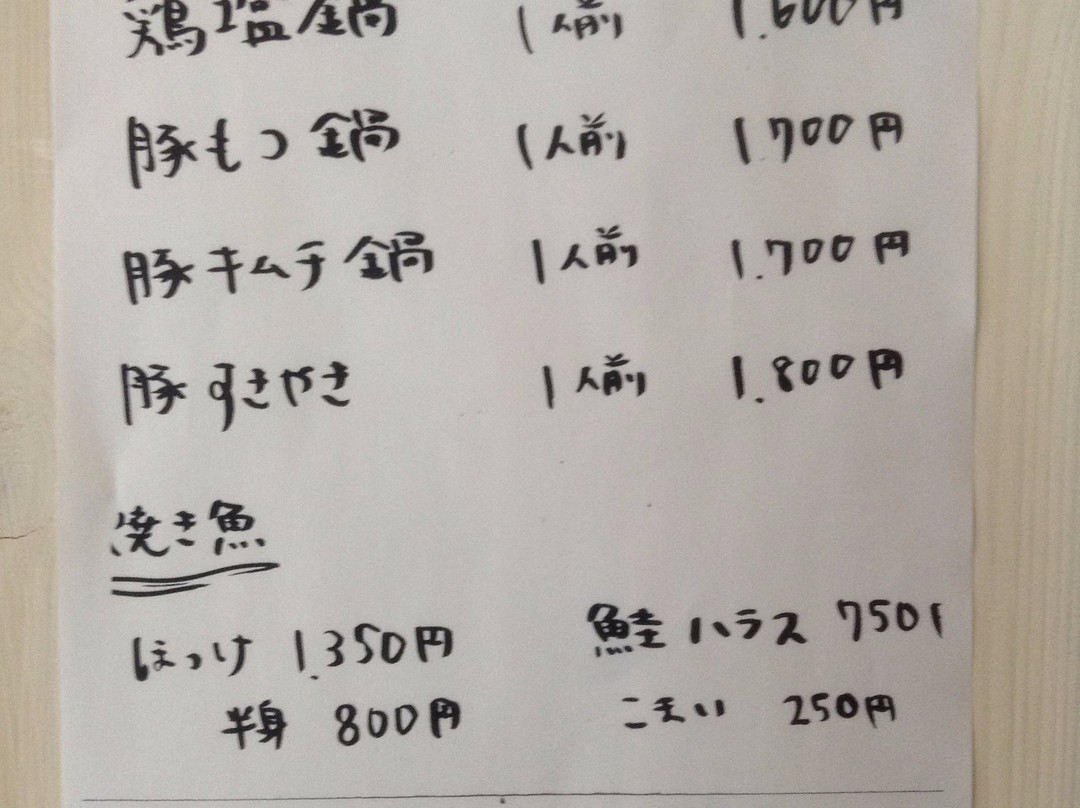 鶏塩鍋 1人前 1.600円
豚もつ鍋 1人前 1.700円
豚キムチ鍋 1人前 1.700円
豚すきやき 1人前 1.800円
焼き魚
ほっけ 1.350円 鮭ハラス 750
半身 800円 こまい 250円